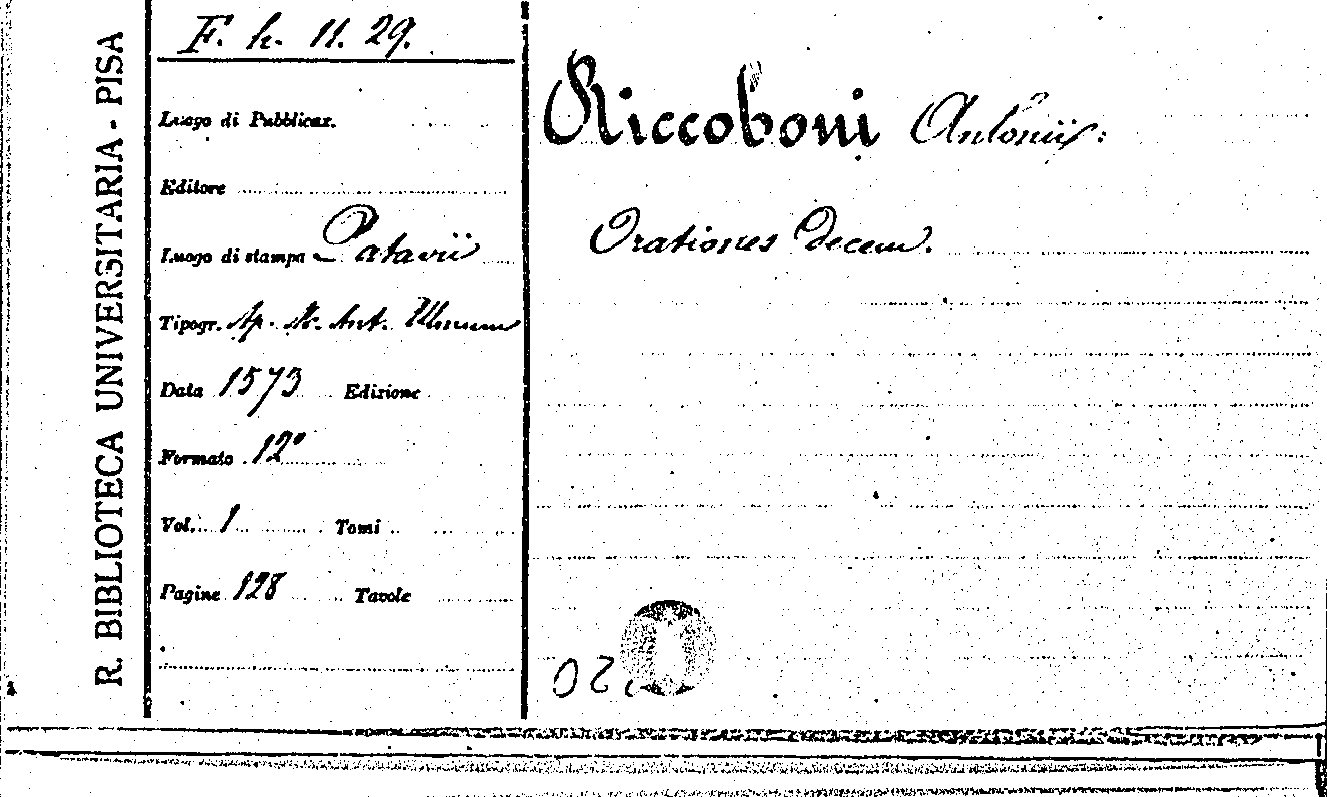 R. BIBLIOTECA UNIVERSITARIA - PISA
F. h. 11. 29.
Luogo di Pubblicaz.
Editore
Luogo di stampa Patavii
Tipogr. Ap. Ant. Ulmum
Data 1573 Edizione
Formato 12°
Vol. 1 Tomi
Pagine 128 Tavole
Riccoboni Antonii:
Orationes Decem.
020